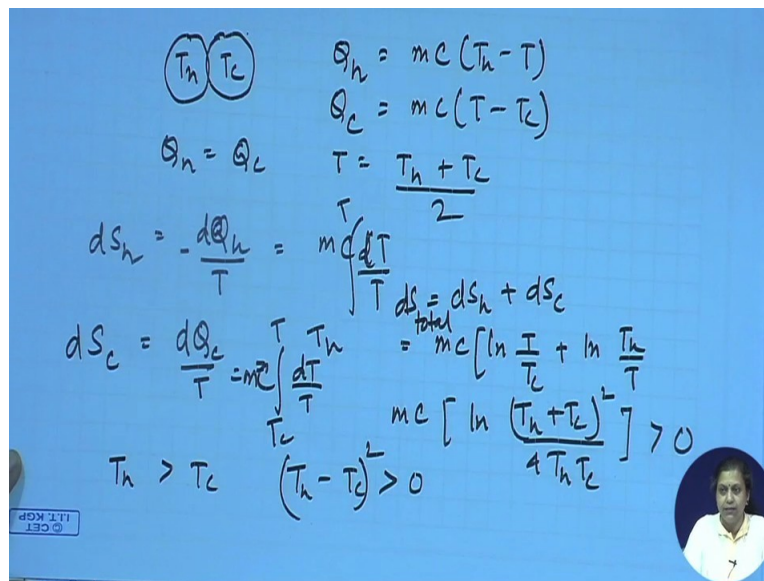 Th Tc Qh = mc (Th - T)
Qc = mc (T - Tc)
Qh = Qc T = Th + Tc / 2
dSh = - dQh / T = mc ∫ T Th dT / T
dS total = dSh + dSc
dSc = dQc / T = mc ∫ T Tc dT / T = mc [ ln T / Tc + ln Th / T
mc [ ln (Th + Tc)² / 4 Th Tc ] > 0
Th > Tc (Th - Tc)² > 0
© CET
I.I.T. KGP